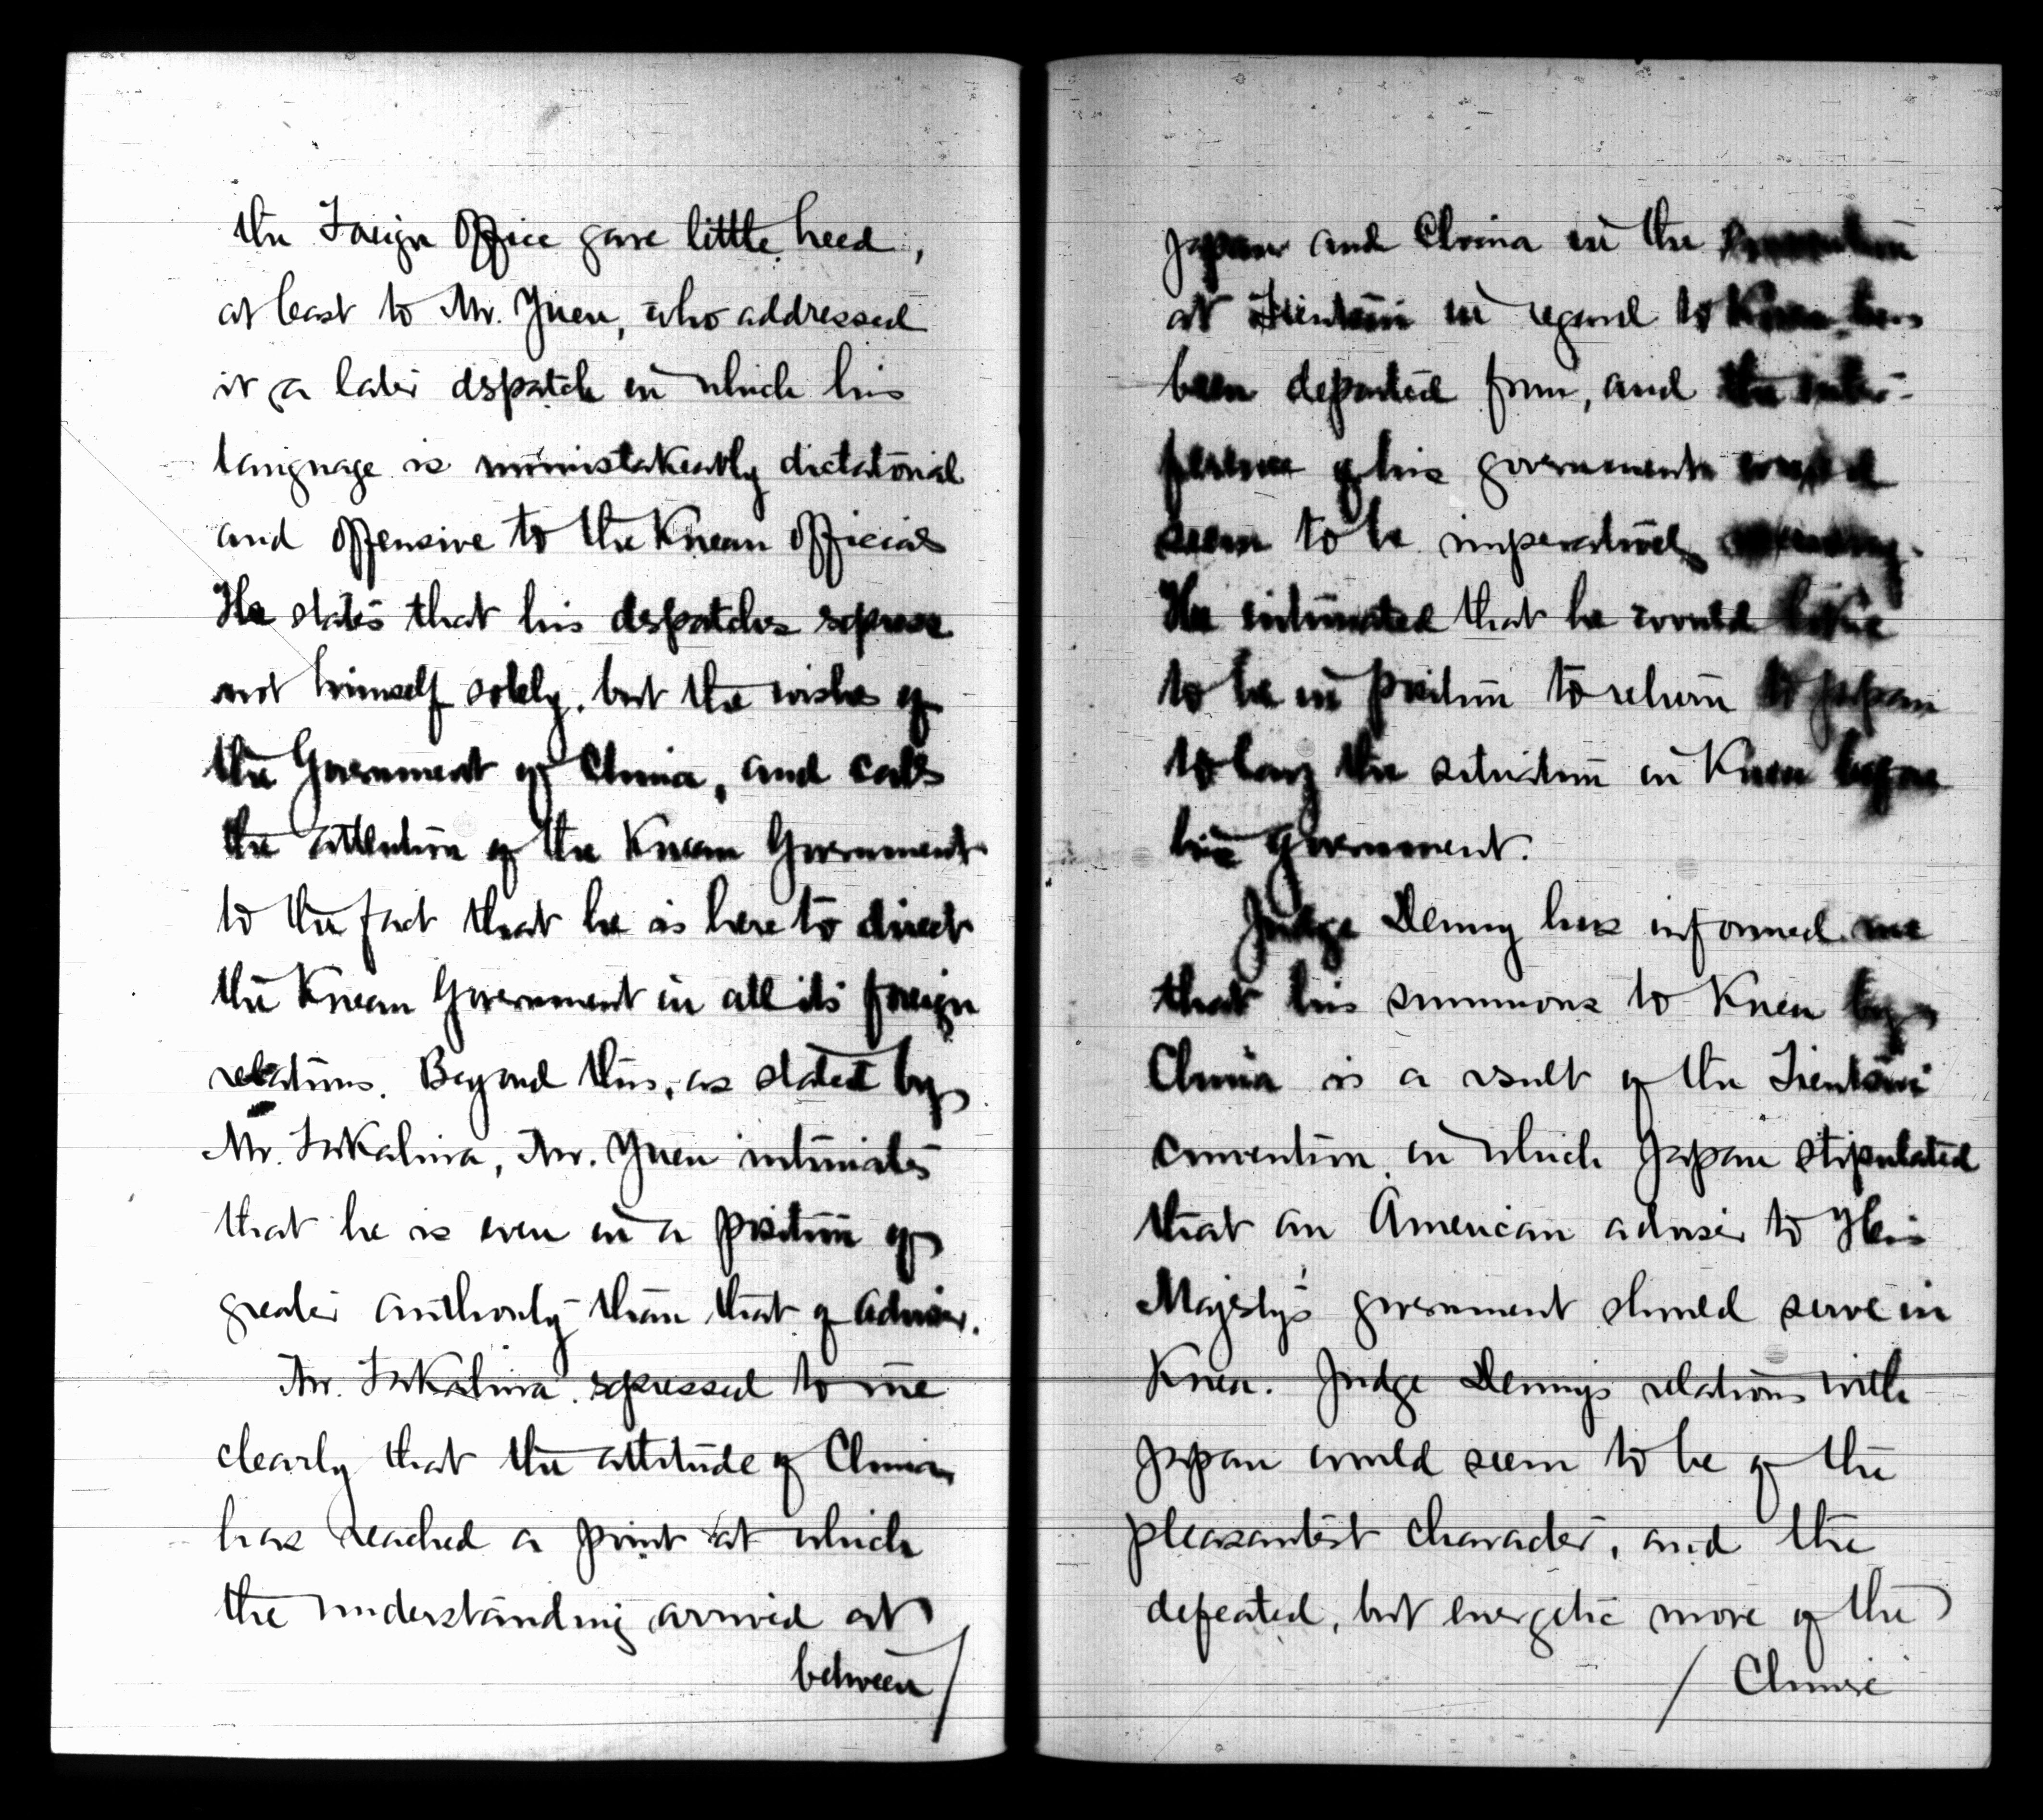 the Foreign Office gave little heed,
at least to Mr. Yuen, who addressed
it a later dspatch in which his
language is unmistakeably dictatorial
and offensive to the Korean officials
He states that his despatches express
not himself solely, but the wishes of
the Government of China, and calls
the attention of the Korean Government
to the fact that he is here to direct
the Korean Government in all its foreign
relations. Beyond this, as stated by
Mr. Takahira, Mr. Yuen intimates
that he is even in a position of
greater authority than that of adviser.
Mr. Takahira expressed to me
clearly that the attitude of China
has reached a point at which
the understanding arrived at
between/
Japan and China in the
at Tientsin in regard to Korea has
been departed from, and the inter-
ference of his government would
seem to be imperatively
He intimated that he would like
to be in position to return to Japan
to lay the situation in Korea before
his government.
Judge Denny has informed me
that his summons to Korea by
China is a result of the Tientsin
convention in which Japan stipulated
that an American adviser to His
Majesty's government should serve in
Korea. Judge Denny's relations with
Japan would seem to be of the
pleasantest character, and the
defeated, but energetic move of the
/ Chinese